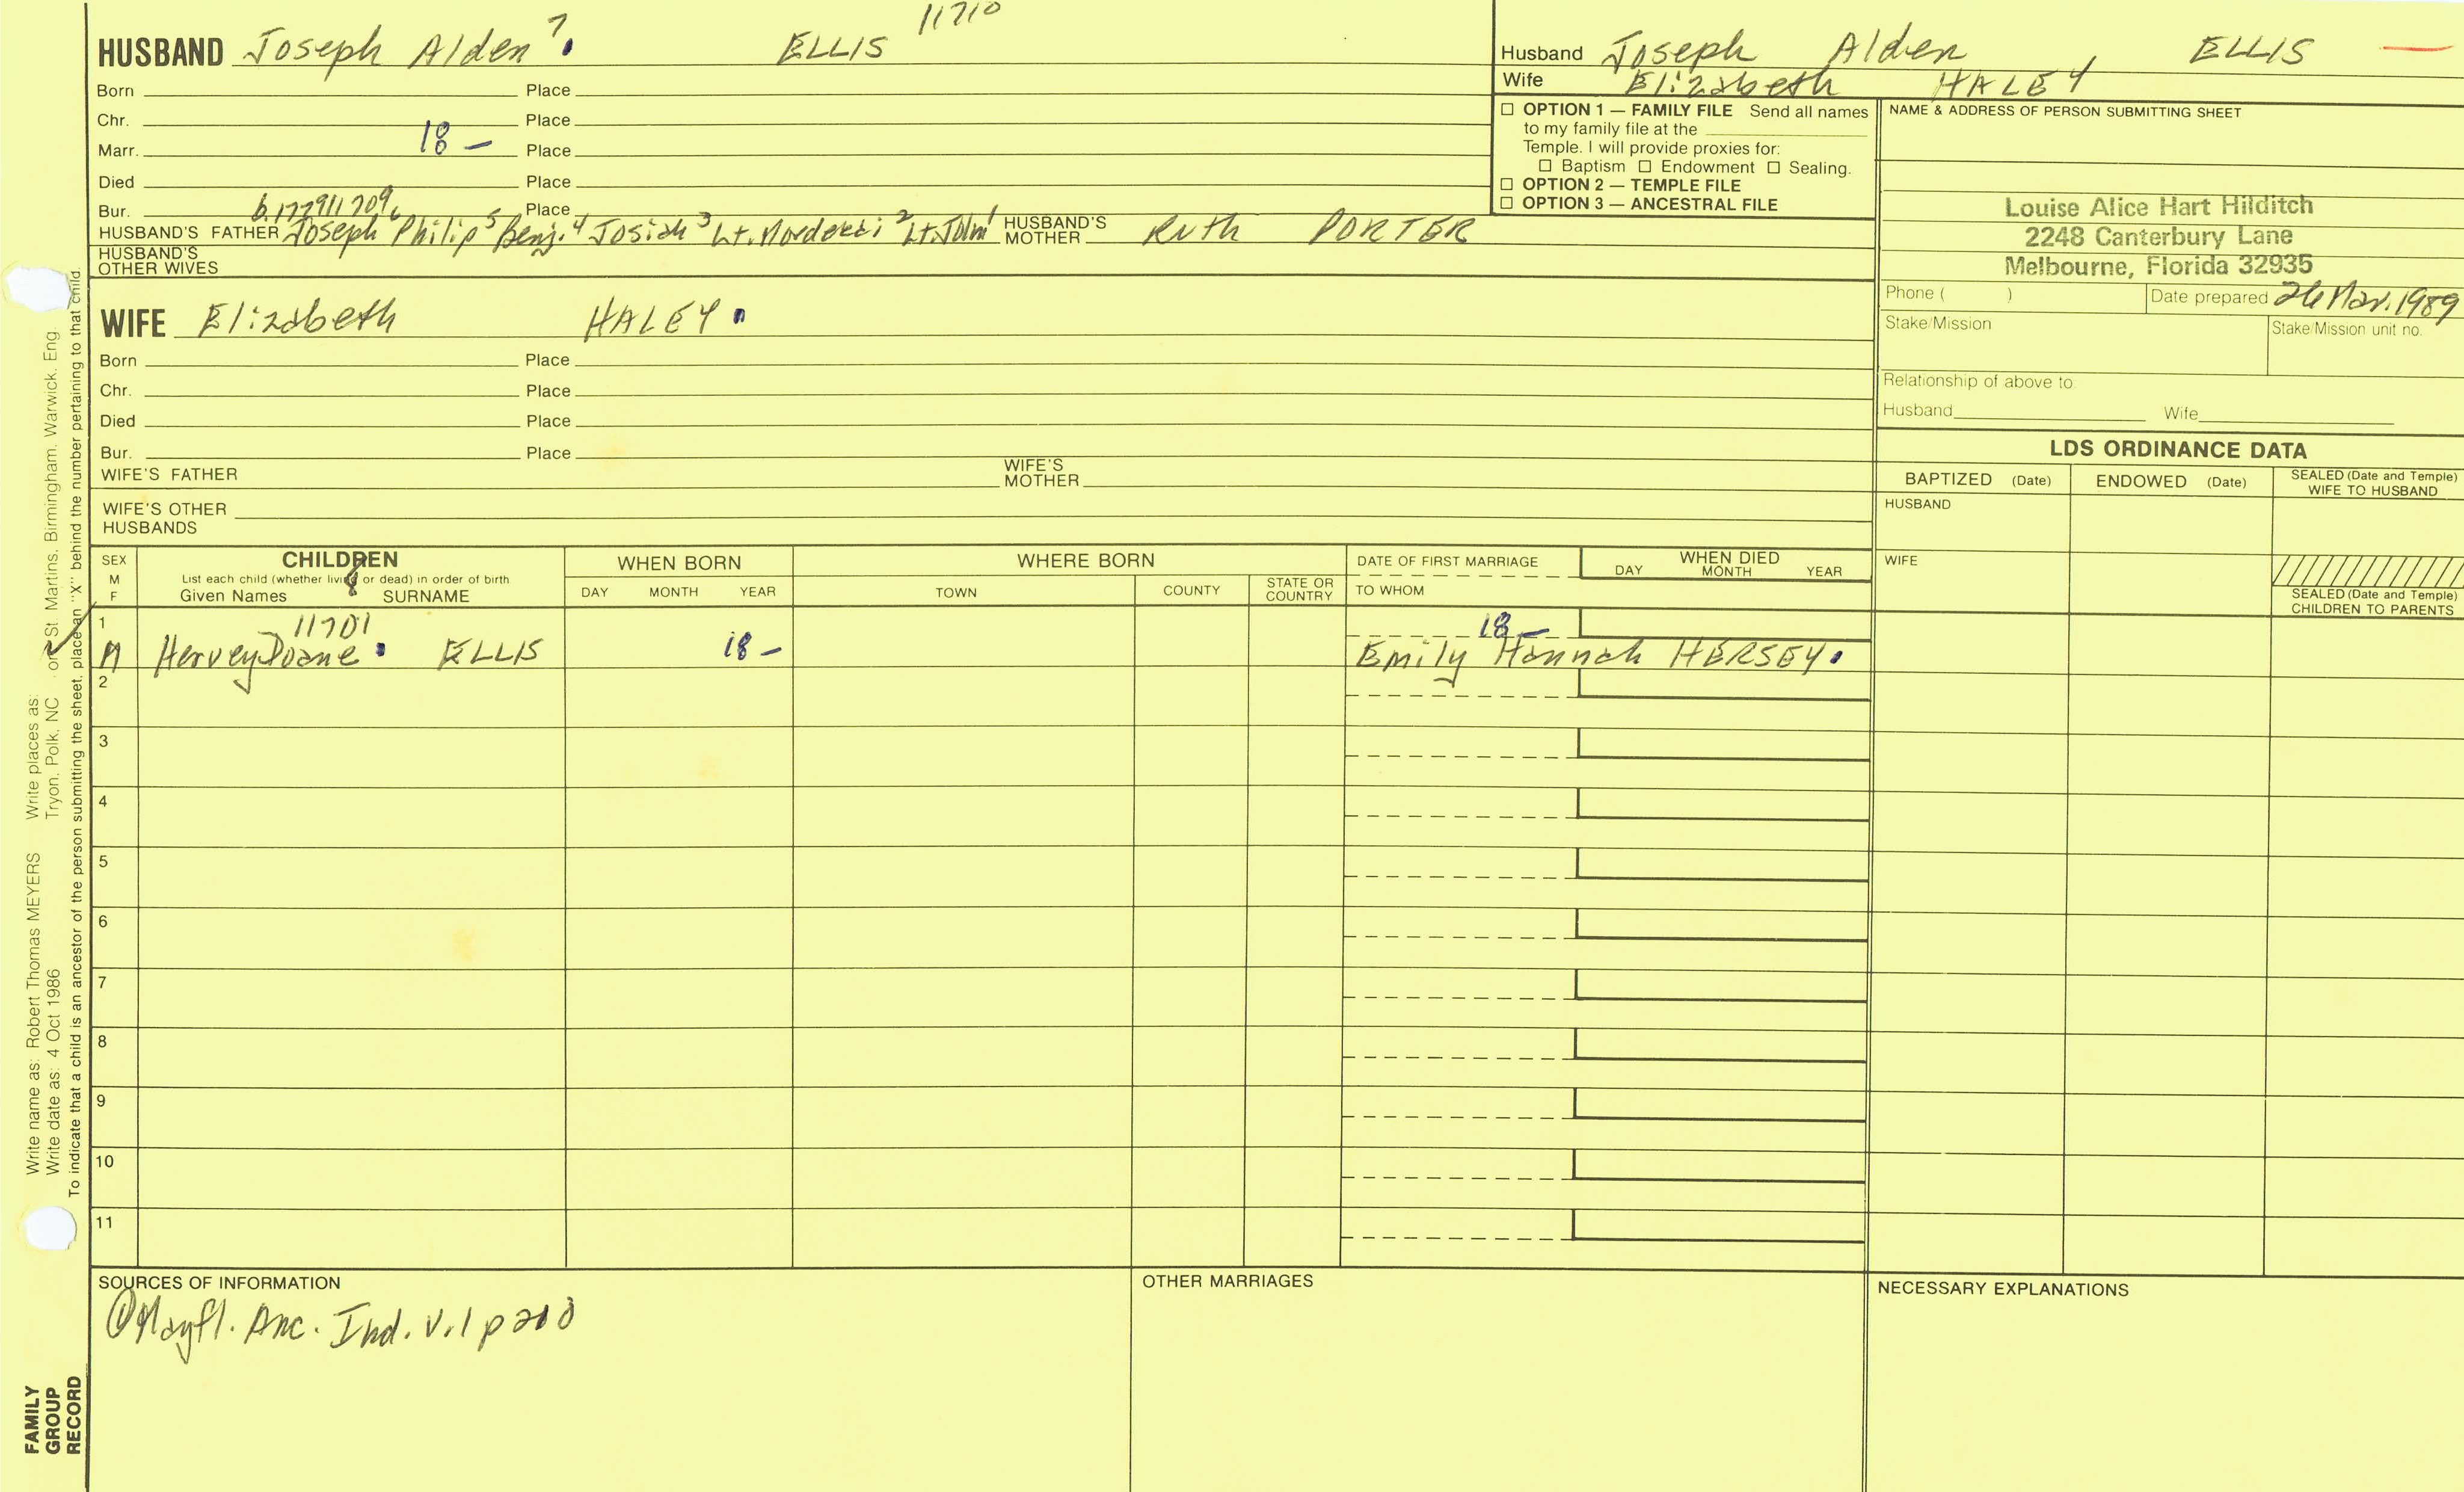 11710
HUSBAND Joseph Alden 7. ELLIS
Born Place
Chr. Place
Marr. 18 — Place
Died Place
Bur. Place
HUSBAND'S FATHER Joseph Philip 5 Benj. 4 Josiah 3 Lt. Mordecai 2 Lt. John 1 HUSBAND'S MOTHER Ruth PORTER
HUSBAND'S
OTHER WIVES
WIFE Elizabeth HALEY.
Born Place
Chr. Place
Died Place
Bur. Place
WIFE'S FATHER WIFE'S MOTHER
WIFE'S OTHER
HUSBANDS
Husband Joseph Alden ELLIS —
Wife Elizabeth HALEY
☐ OPTION 1 — FAMILY FILE Send all names
to my family file at the
Temple. I will provide proxies for:
☐ Baptism ☐ Endowment ☐ Sealing.
☐ OPTION 2 — TEMPLE FILE
☐ OPTION 3 — ANCESTRAL FILE
NAME & ADDRESS OF PERSON SUBMITTING SHEET
Louise Alice Hart Hilditch
2248 Canterbury Lane
Melbourne, Florida 32935
Phone ( ) Date prepared 26 Mar. 1989
Stake/Mission Stake/Mission unit no.
Relationship of above to
Husband Wife
LDS ORDINANCE DATA
BAPTIZED (Date) ENDOWED (Date) SEALED (Date and Temple)
WIFE TO HUSBAND
HUSBAND
WIFE
SEALED (Date and Temple)
CHILDREN TO PARENTS
SEX
M
F
CHILDREN
List each child (whether living or dead) in order of birth
Given Names SURNAME
8
WHEN BORN
DAY MONTH YEAR
WHERE BORN
TOWN COUNTY STATE OR COUNTRY
DATE OF FIRST MARRIAGE
TO WHOM
WHEN DIED
DAY MONTH YEAR
1 11701 18 —
M Hervey Doane. ELLIS 18 — Emily Hannah HERSEY.
2
3
4
5
6
7
8
9
10
11
SOURCES OF INFORMATION
① Mayfl. Anc. Ind. v.1 p 210
OTHER MARRIAGES
NECESSARY EXPLANATIONS
Write name as: Robert Thomas MEYERS Write places as:
Write date as: 4 Oct 1986 Tryon, Polk, NC or St. Martins, Birmingham, Warwick, Eng
To indicate that a child is an ancestor of the person submitting the sheet, place an "X" behind the number pertaining to that child.
FAMILY
GROUP
RECORD